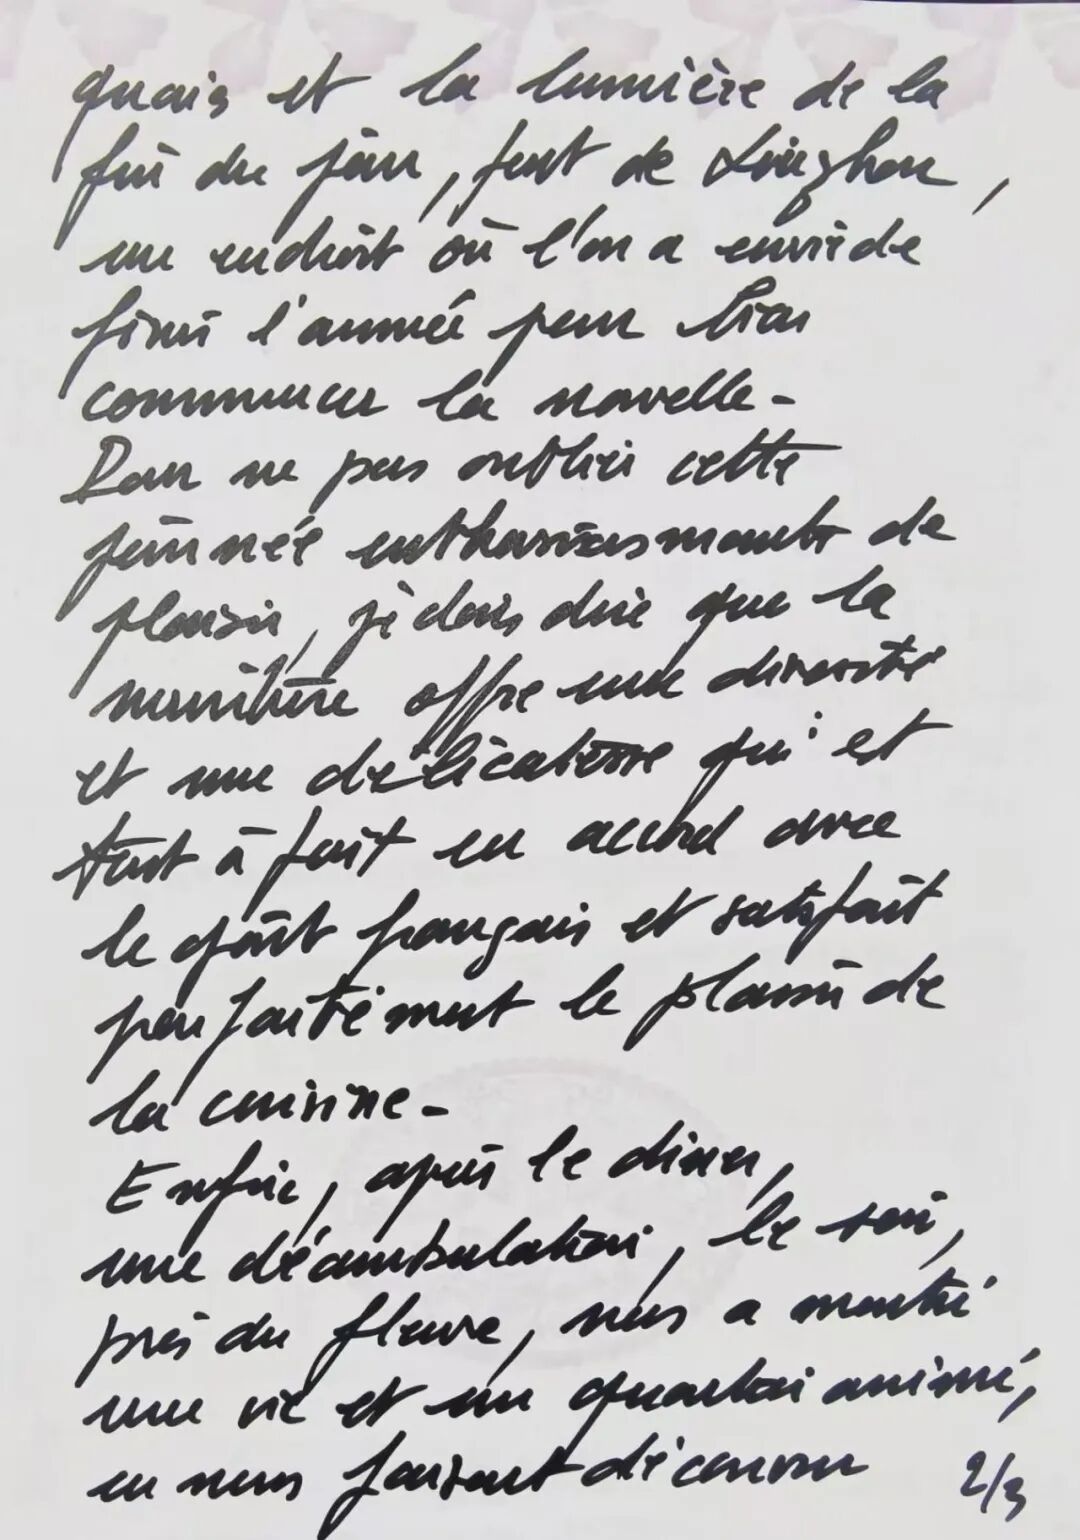 quais et la lumière de la
fin du jour, font de Linghou,
un endroit où l'on a envie de
finir l'année pour bien
commencer la nouvelle-
Pour ne pas oublier cette
journée enthousiasmante de
plaisir, je dois dire que la
nourriture offre une diversité
et une délicatesse qui est
tout à fait en accord avec
le goût français et satisfait
parfaitement le plaisir de
la cuisine-
Enfin, après le diner,
une déambulation, le soir,
près du fleuve, nous a montré
une vie et un quartier animé,
en nous faisant découvrir
2/3